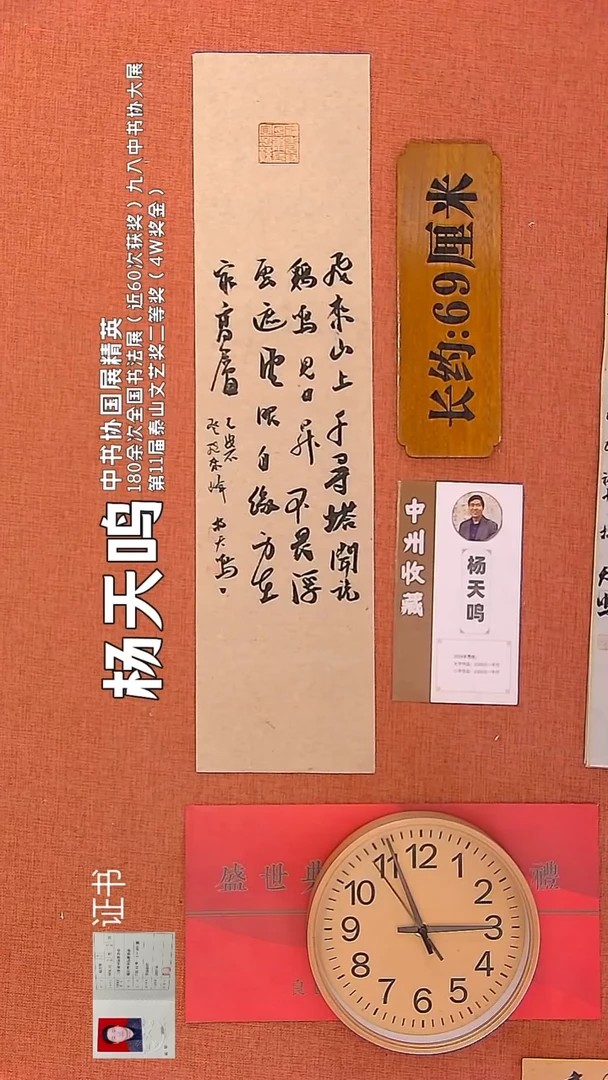 杨天鸣
中书协国展精英
180余次全国书法展（近60次获奖）九八中书协大展
第11届泰山文艺奖二等奖（4W奖金）
飛來山上千尋塔聞說
鷄鳴見日昇不畏浮
雲遮望眼自緣身在
最高層
王安石
登飛來峰 楊天鳴
长约:69厘米
中州收藏
杨天鸣
证书
盛世典
禮
12
1
2
3
4
5
6
7
8
9
10
11